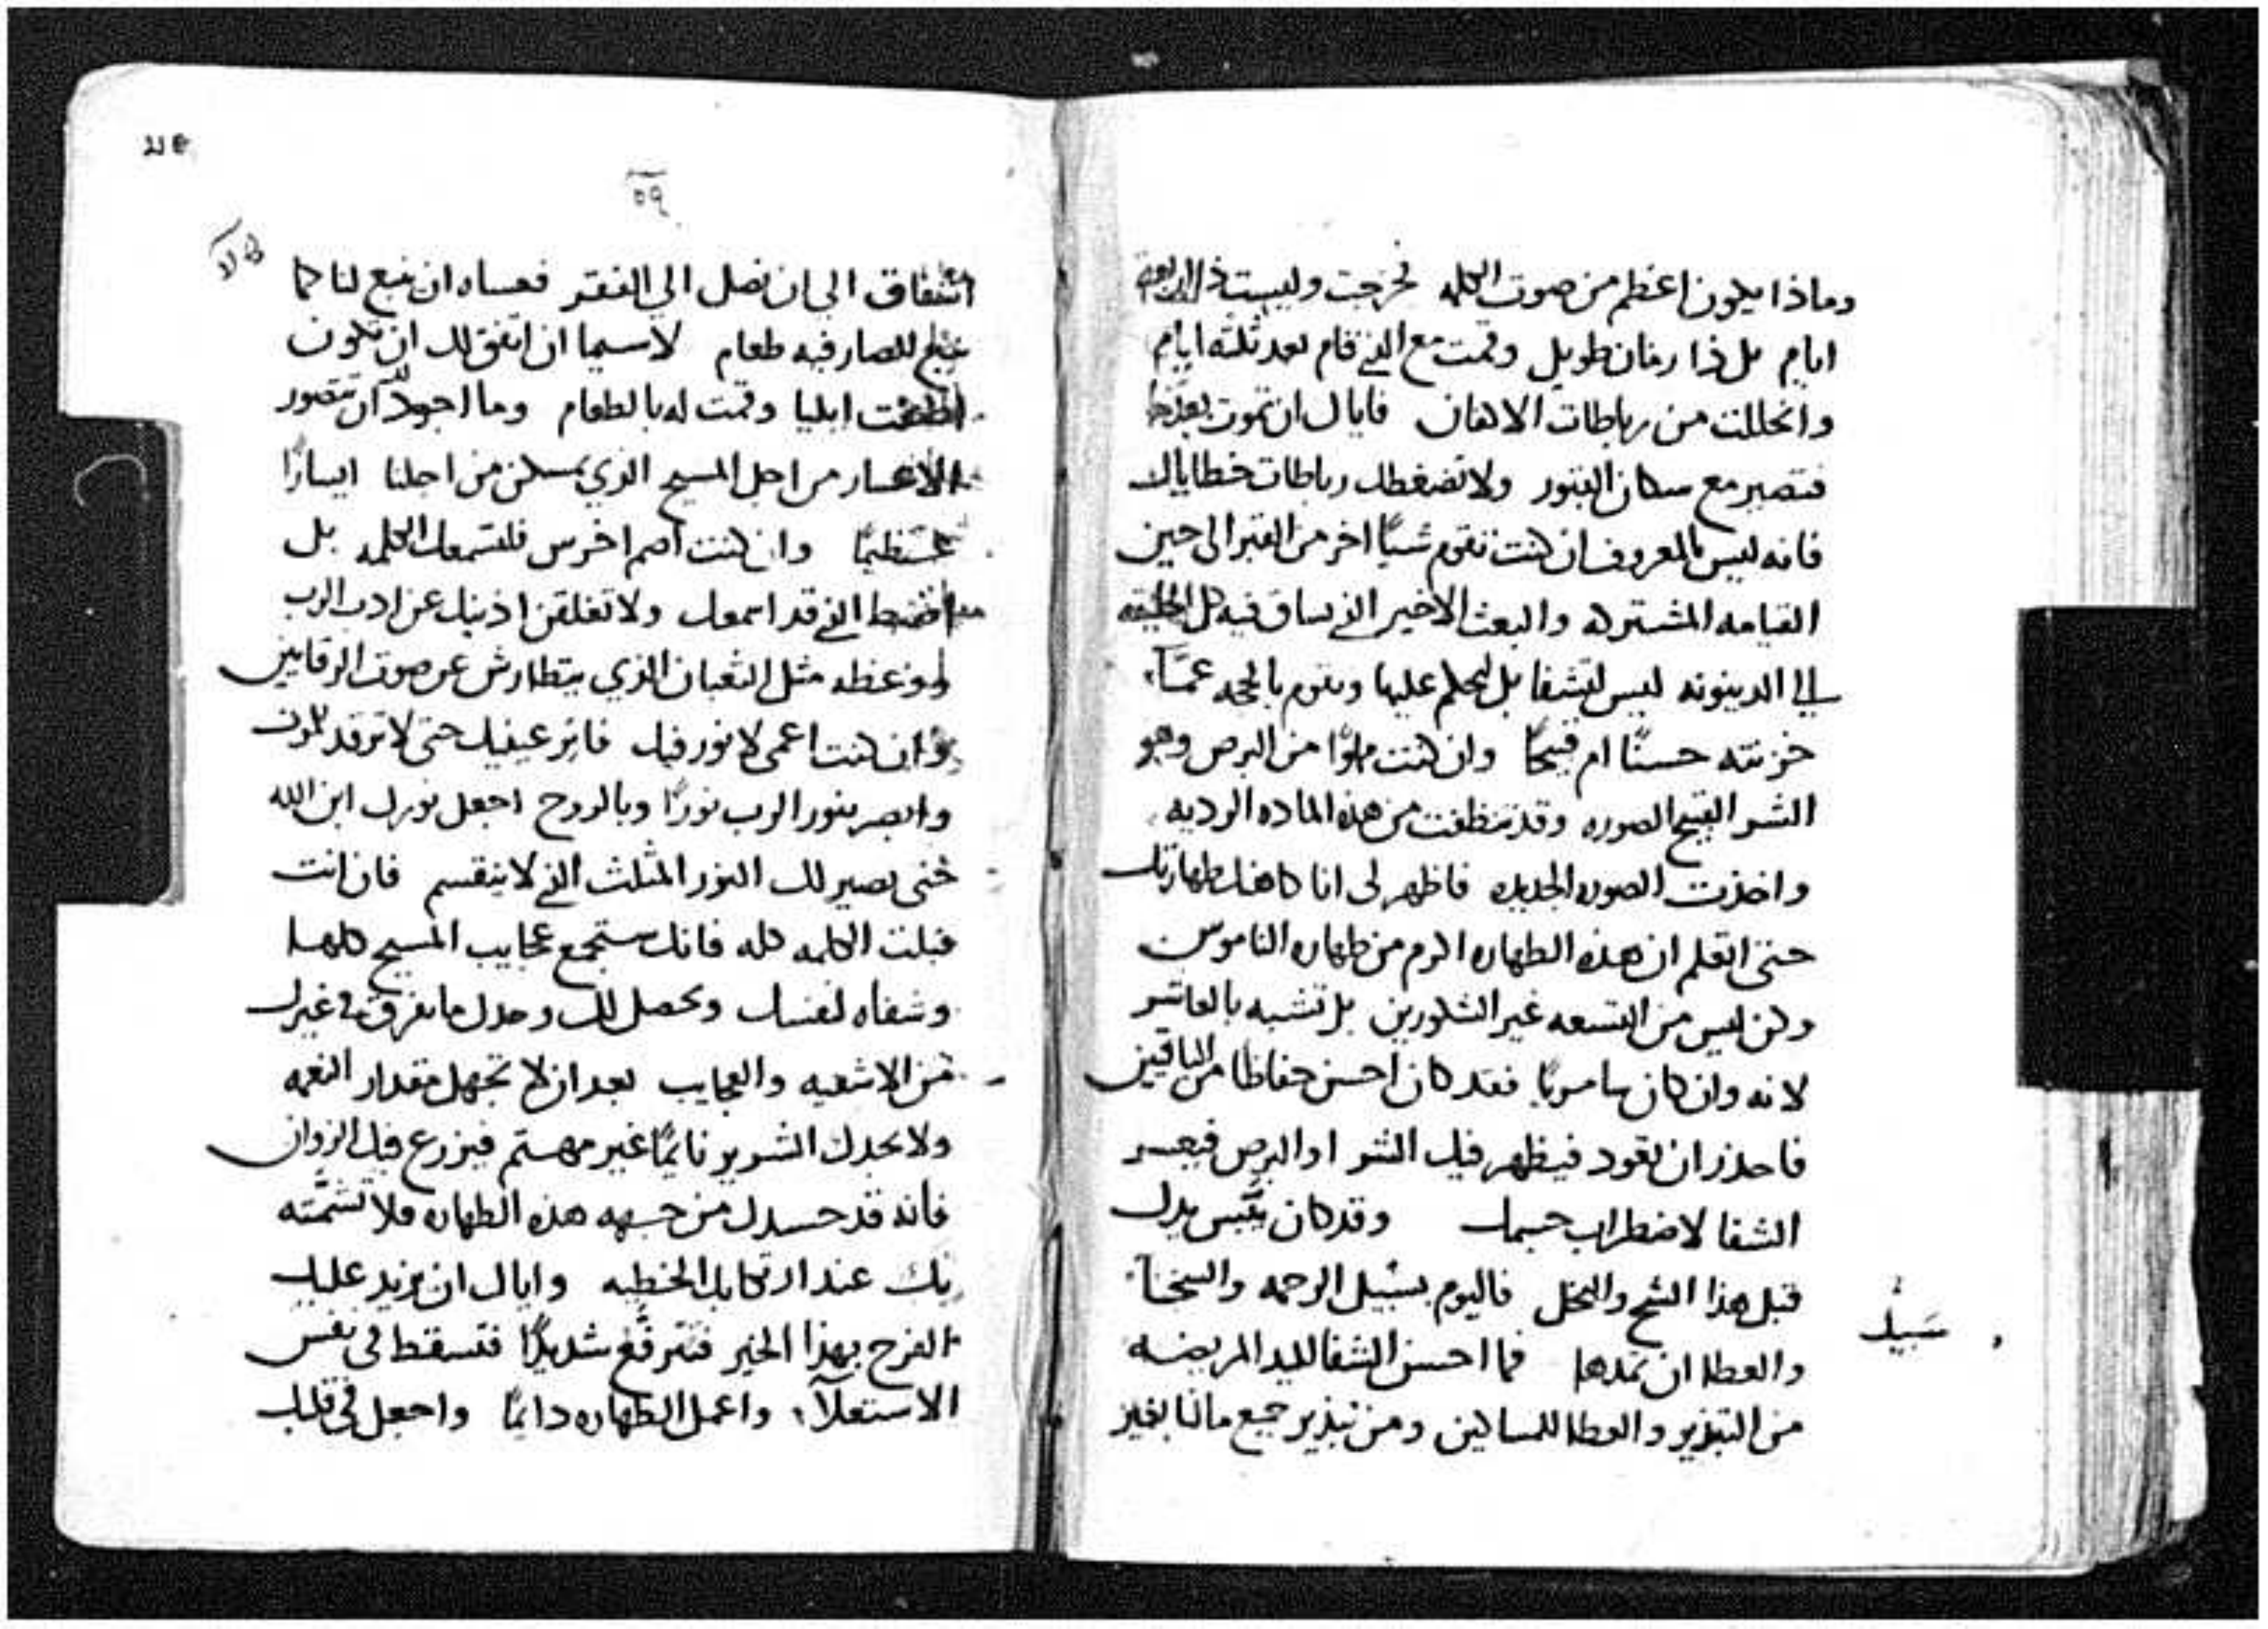 وماذا يكون اعظم من صوت الكلمه فخرجت وليست ذا اربعة
ايام بل ذا زمان طويل وقمت مع الذي قام بعد ثلثة ايام
وانحللت من رباطات الاكفان فاياك ان تموت بعدها
فتصير مع سكان القبور ولا تضغطك رباطات خطاياك
فانه ليس بالمعروف ان كنت تقوم شيًا اخر من القبر الى حين
القيامه المشتركه والبعث الاخير الذي يساق فيه كل الخليقه
الي الدينونه ليس لتشفا بل ليحكم عليها ويقوم بالحجه عمّا
خزنته حسنًا ام قبيحًا وان كنت مملوًا من البرص وهو
الشر القبيح الصوره وقد تنظفت من هذه الماده الرديه
واخذت الصوره الجديده فاظهر لي انا كاهنك طهارتك
حتى اتعلم ان هذه الطهاره اكرم من طهاره الناموس
وكن ليس من التسعه غير الشكورين بل تشبه بالعاشر
لانه وان كان سامريًا فقد كان احسن حفاظا من الباقين
فاحذر ان تعود فيظهر فيك الشر او البرص فيعسر
الشفا لاضطراب جسمك وقد كان يبّس يدك
قبل هذا الشح والبخل فاليوم بسبيل الرحمه والسخاء
سَبيل
والعطا ان تمدها فما احسن الشفا لليد المريضه
من التبذير والعطا للمساكين ومن تبذير جميع مالنا بغير
٥٩
اشفاق الى ان نصل الي الفقر فعساه ان ينبع لنا كما
ينبع للصارفيه طعام لاسيما ان اتفق لك ان تكون
اطعمت ايليا وقمت له بالطعام وما اجود لك ان تتصور
الاعسار من اجل المسيح الذي تمسكن من اجلنا ايسارًا
عظيمًا وان كنت اصم اخرس فلتسمعك الكلمه بل
اضبط الذي قد اسمعك ولا تغلقن اذنيك عن ادب الرب
ووعظه مثل الثعبان الذي يتطارش عن صوت الرقايين
وان كنت اعمى لا نور فيك فانر عينيك حتى لا ترقد للموت
وابصر بنور الرب نورًا وبالروح اجعل نورك ابن الله
حتى يصير لك النور المثلث الذي لا ينقسم فان انت
قبلت الكلمه كله فانك ستجمع عجايب المسيح كلها
وشفاه لنفسك ويحصل لك وحدك ما تفرق في غيرك
من الاشفيه والعجايب بعد ان لا تجهل مقدار النعمه
ولا يجدك الشرير نايمًا غير مهتم فيزرع فيك الزوان
فانه قد حسدك من جهه هذه الطهاره فلا تشمّته
بك عند ارتكابك الخطيه واياك ان يزيد عليك
الفرح بهذا الخير فتترفّع شديدًا فتسقط في نفس
الاستعلاء واعمل الطهاره دايمًا واجعل في قلبك